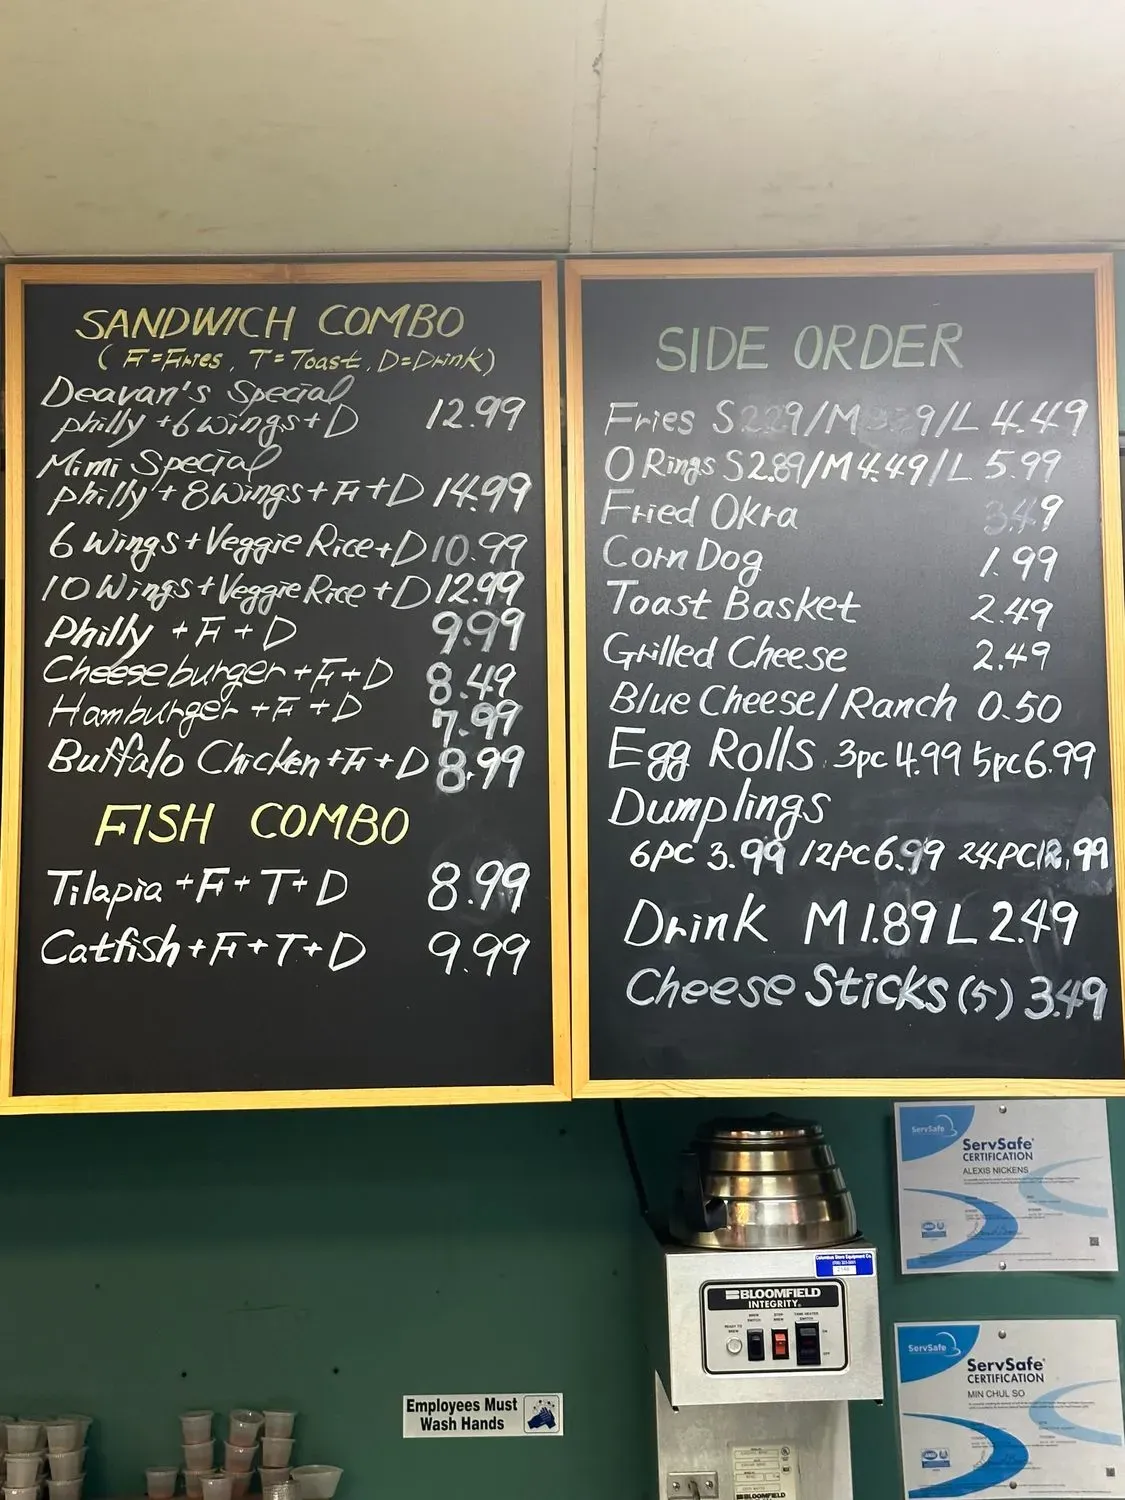 SANDWICH COMBO
( F=Fries, T=Toast, D=Drink)
Deavan's Special
philly +6 wings+D 12.99
Mimi Special
philly+8wings+F+D 14.99
6 wings+Veggie Rice+D 10.99
10 Wings+Veggie Rice+D 12.99
Philly +F+D 9.99
Cheeseburger+F+D 8.49
Hamburger+F+D 7.99
Buffalo Chicken+F+D 8.99
FISH COMBO
Tilapia +F+T+D 8.99
Catfish+F+T+D 9.99
SIDE ORDER
Fries S 2.29/M 3.39/L 4.49
O Rings S2.89/M4.49/L 5.99
Fried Okra 3.49
Corn Dog 1.99
Toast Basket 2.49
Grilled Cheese 2.49
Blue Cheese/Ranch 0.50
Egg Rolls 3pc 4.99 5pc6.99
Dumplings
6PC 3.99 12PC6.99 24PC12.99
Drink M1.89 L2.49
Cheese Sticks (5) 3.49
ServSafe
ServSafe
CERTIFICATION
ALEXIS NICKENS
Columbus Store Equipment Co.
BLOOMFIELD
INTEGRITY
READY TO
BREW
BREW
SWITCH
STOP
BREW
TANK HEATER
SWITCH
ON
OFF
ServSafe
ServSafe
CERTIFICATION
MIN CHUL SO
Employees Must
Wash Hands
BLOOMFIELD